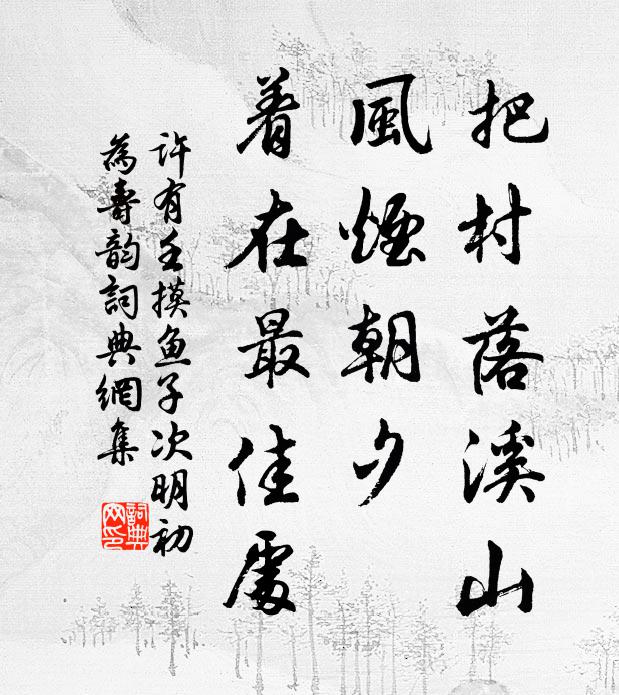 把村落溪山
風煙朝夕
着在最佳處
許有壬摸鱼子次明初
為壽韵詞典網集
詞典網印